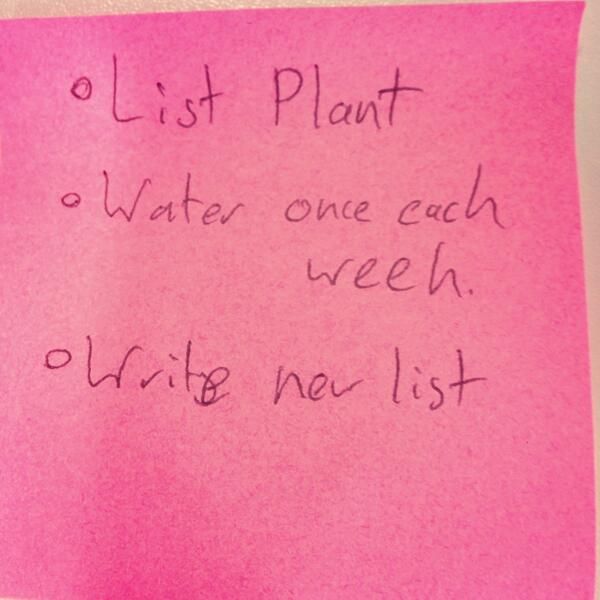 • List Plant
• Water once each
week.
• Write new list